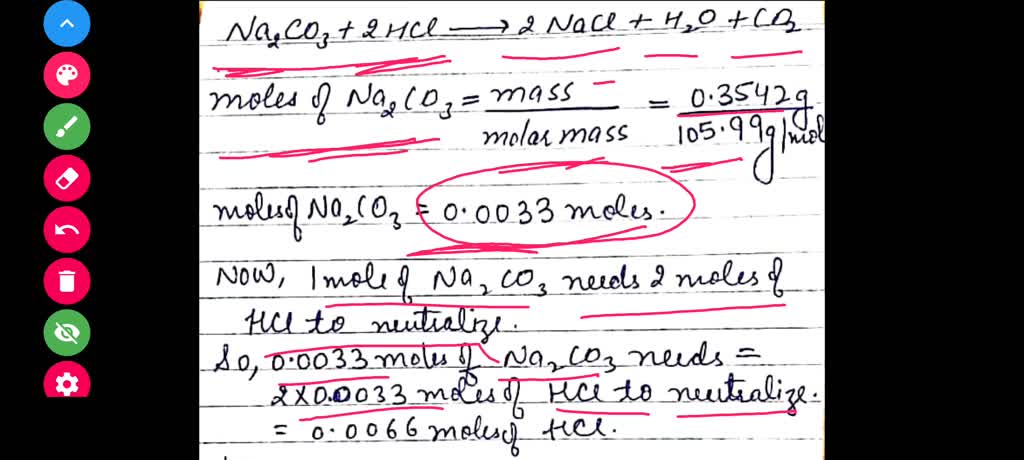 Na₂CO₃ + 2HCl → 2 NaCl + H₂O + CO₂
moles of Na₂CO₃ = mass / molar mass = 0.3542g / 105.99g/mol
moles of Na₂CO₃ = 0.0033 moles.
Now, 1 mole of Na₂CO₃ needs 2 moles of
HCl to neutralize.
So, 0.0033 moles of Na₂CO₃ needs =
2X0.0033 moles of HCl to neutralize.
= 0.0066 moles of HCl.